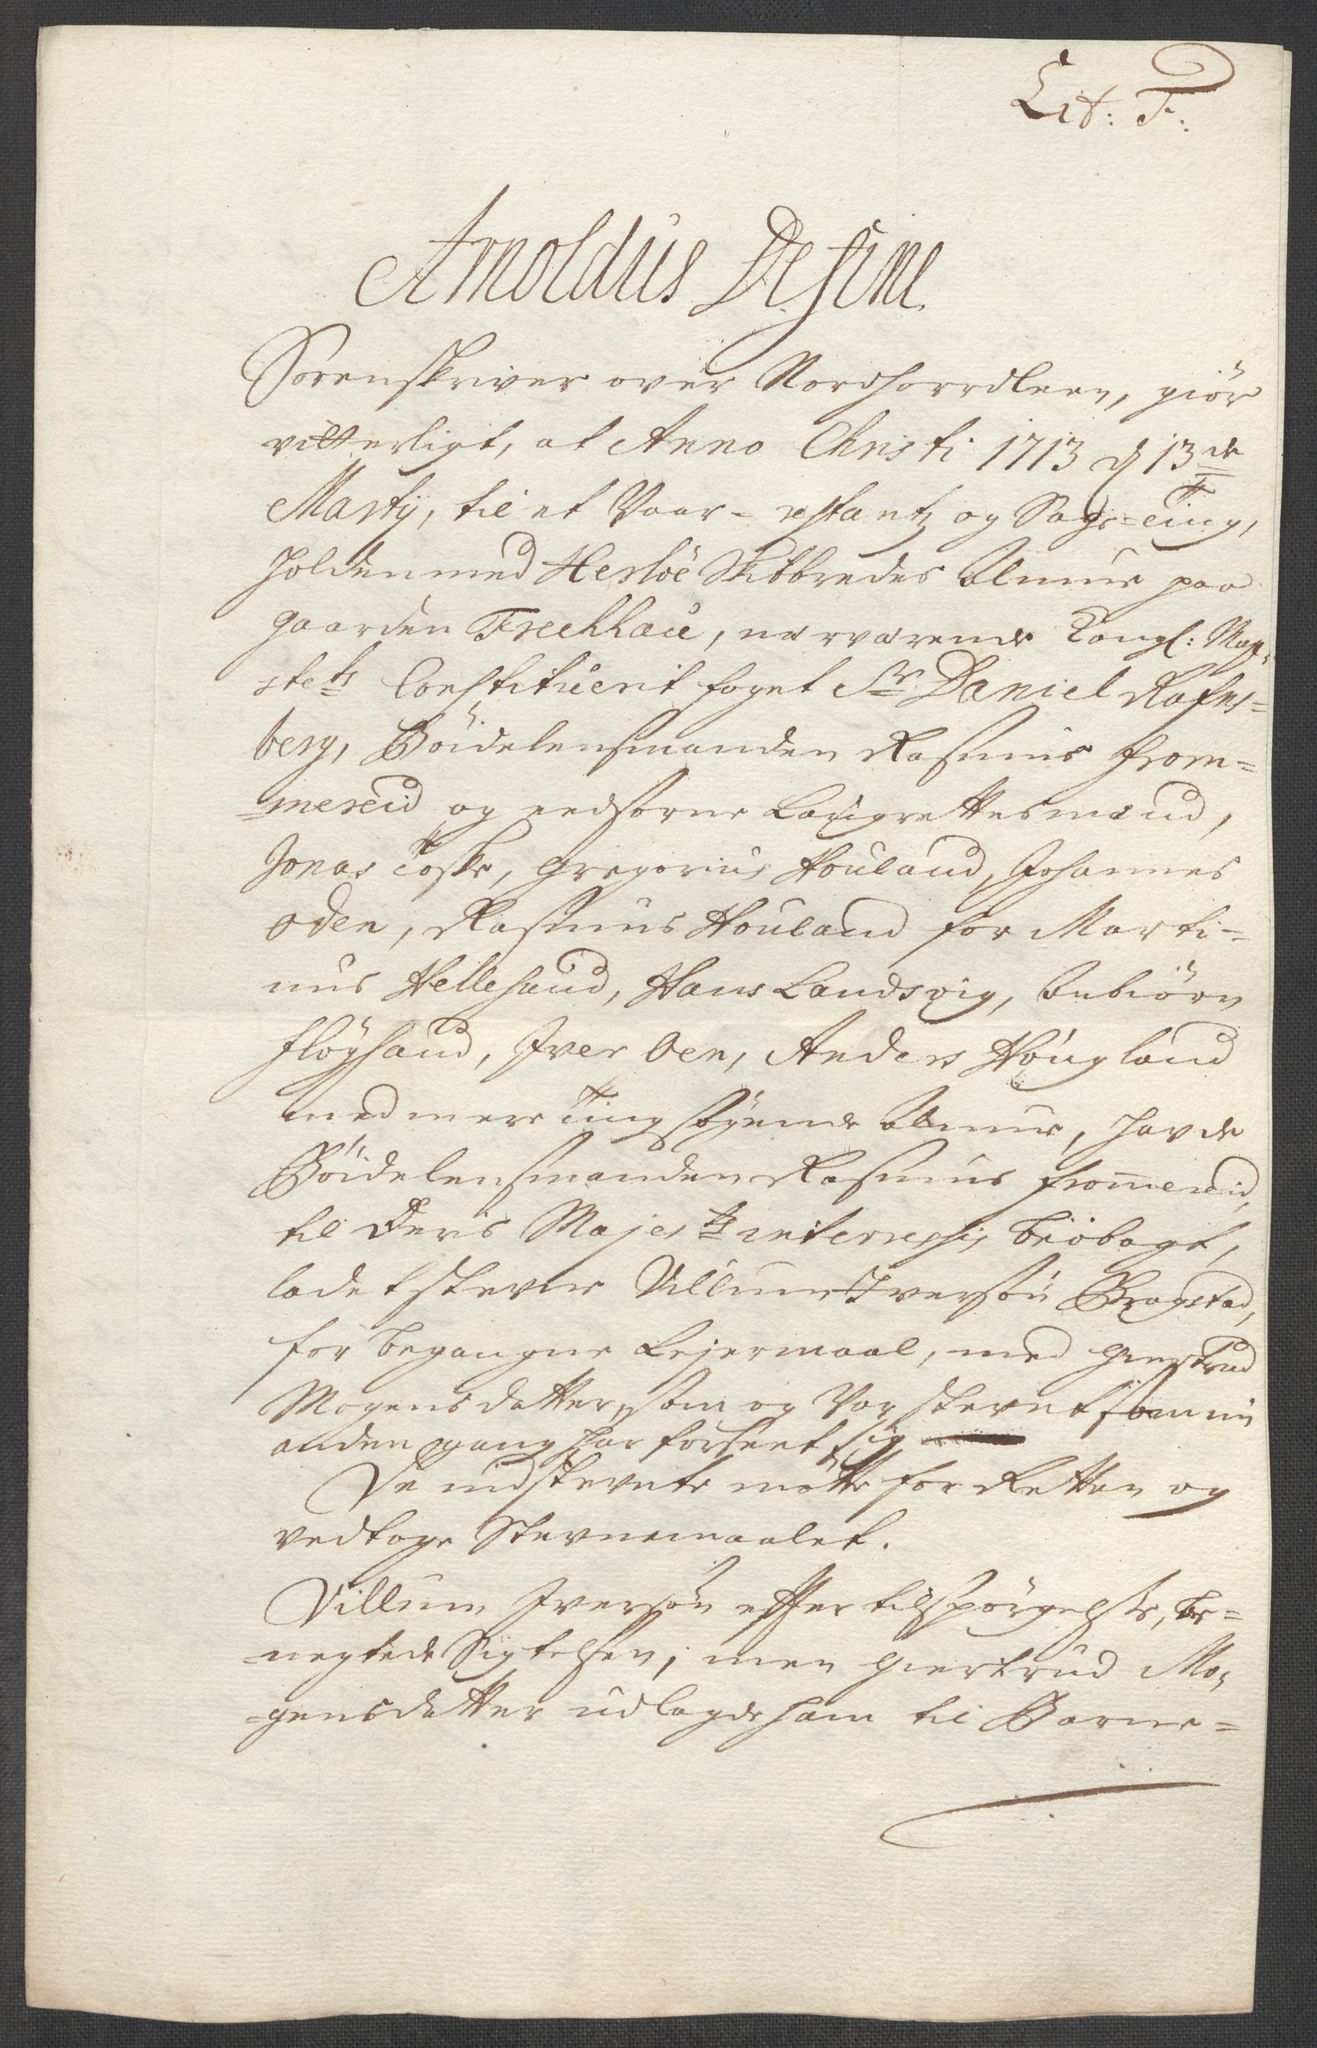 Lit: F:
Arnoldus De Fine
Sorenskriver over Nordhorrdleen, giör
vitterligt, at Anno Christi 1713 d 13de
Marty, til et Vaar- restantz og Sage-Ting,
holden med Herlöe Skibbredes Almue paa
gaarden Freckhaü, nærværende Kongl: May-
stets Constituerit foget Sr. Daniel Rafns-
berg, Böidelensmanden Rasmus From-
-mereid og eedsorne Laugrettesmænd,
Jonas Toske, Gregorius Houland, Johannes
Oden, Rasmus Houland for Marti-
nus Hellesund, Hans Landsvig, Anbiörn
Flöysand, Iver Oen, Anders Höugland
med mere Tingsögende Almue, havde
Böidelensmanden Rasmus Fromereid,
til Deris Majests interresses beobagt,
ladet stevne Villum Iversön Bragstad,
for begangne Lejermaal, med Giertrud
Mogensdatter, som og var stevnet som nu
anden gang har forseet sig
De indstevnte mötte for Retten og
vedtoge Stevnemaalet.
Villum Iversön effter tilspörgelse, be-
-negtede Sigtelsen, men Giertrud Mo-
-gensdatter udlagde ham til Barne-